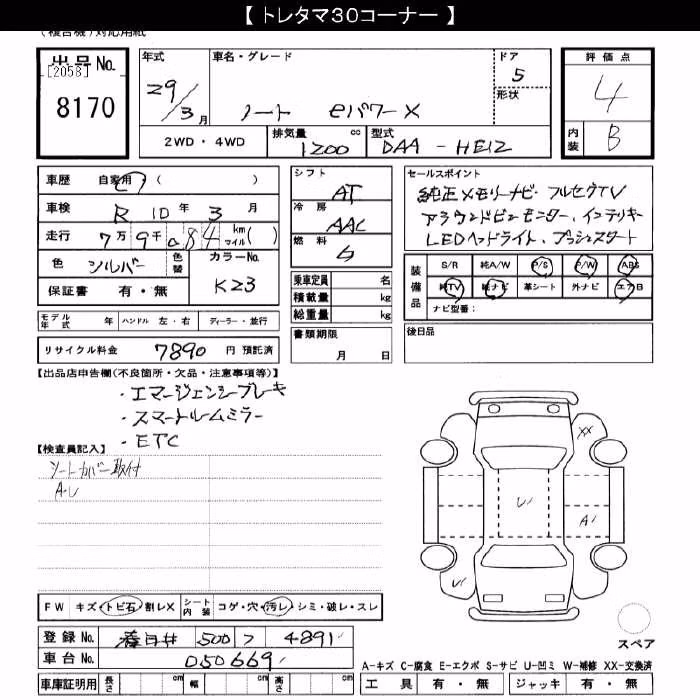 【 トレタマ30コーナー 】
(複合機)対応用紙
出品 No. [2058] 8170
年式 29/3月
車名・グレード ノート eパワー X
ドア 5
形状
評価点 4
内装 B
2WD・4WD
排気量 1200 cc
型式 DAA - HE12
車歴 自家用 ( )
車検 R 10年 3月
走行 7万 9千 084 km マイル ( )
色 シルバー
色替
カラーNo. K23
保証書 有・無
シフト AT
冷房 AAC
燃料 G
乗車定員 名
積載量 kg
総重量 kg
書類期限 月 日
セールスポイント
純正メモリーナビ・フルセグTV
アラウンドビューモニター、インテリキー
LEDヘッドライト、プッシュスタート
装備品 S/R 純A/W P/S P/W ABS
純TV 純ナビ 革シート 外ナビ エアB
ナビ型番:
後日品
モデル年式 年 ハンドル 左・右 ディーラー・並行
リサイクル料金 7890 円 預託済
【出品店申告欄(不良箇所・欠品・注意事項等)】
・エマージェンシーブレーキ
・スマートルームミラー
・ETC
【検査員記入】
シートカバー取付
A・U
XX
U
A
U
FW キズ・トビ石・割レX シート内装 コゲ・穴・汚レ・シミ・破レ・スレ
登録 No. 春日井 500 フ 4891
車台 No. 050669
スペア
A-キズ C-腐食 E-エクボ S-サビ U-凹ミ W-補修 XX-交換済
車庫証明用 長さ cm 幅 cm 高さ cm
工具 有・無 ジャッキ 有・無